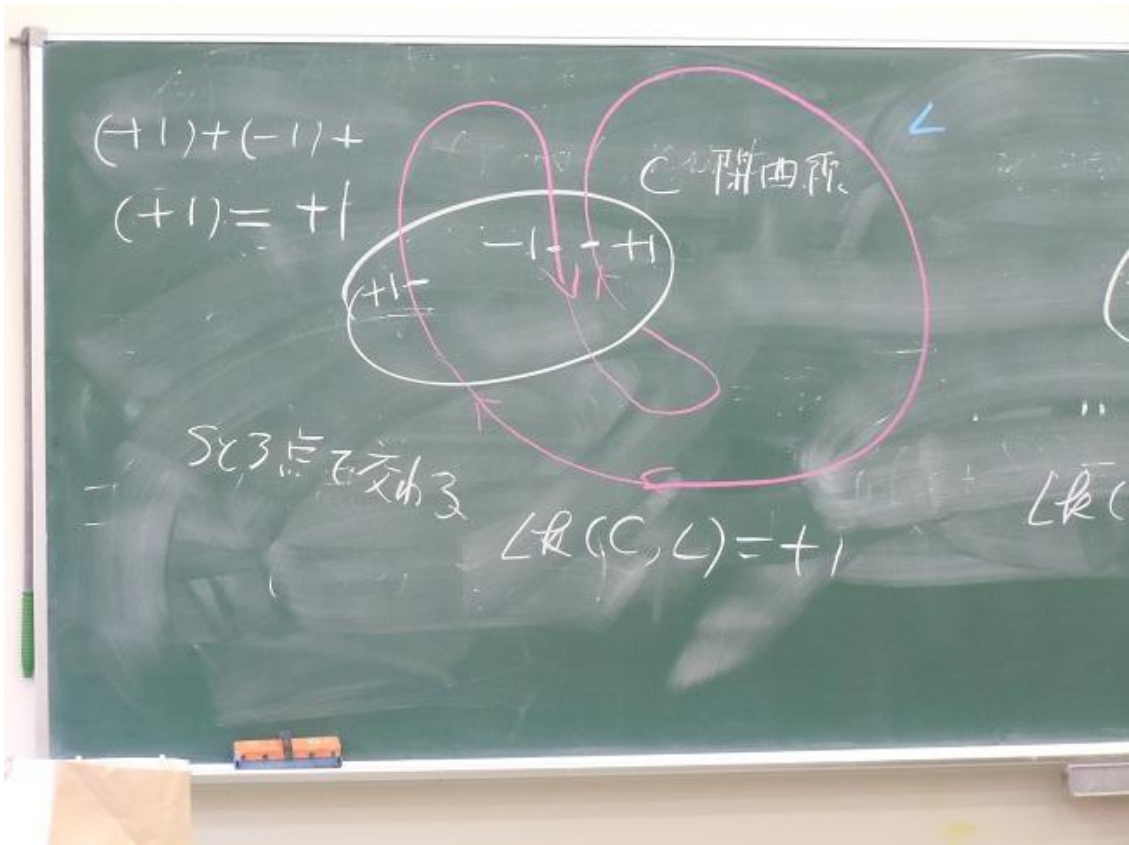 (+1)+(-1)+
(+1)=+1
C 閉曲線
L
-1
+1
+1
Sと3点で交わる
Lk(C,L)=+1
Lk(